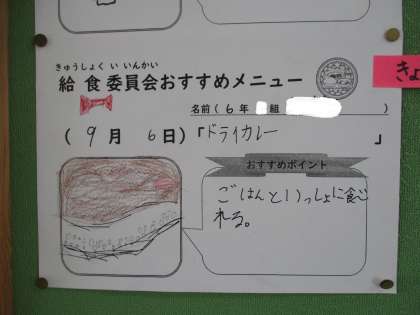 きゅうしょく い いんかい
給食委員会おすすめメニュー
名前(6年 組 )
(9月 6日)「ドライカレー」
おすすめポイント
ごはんといっしょに食べ
れる。
きょ